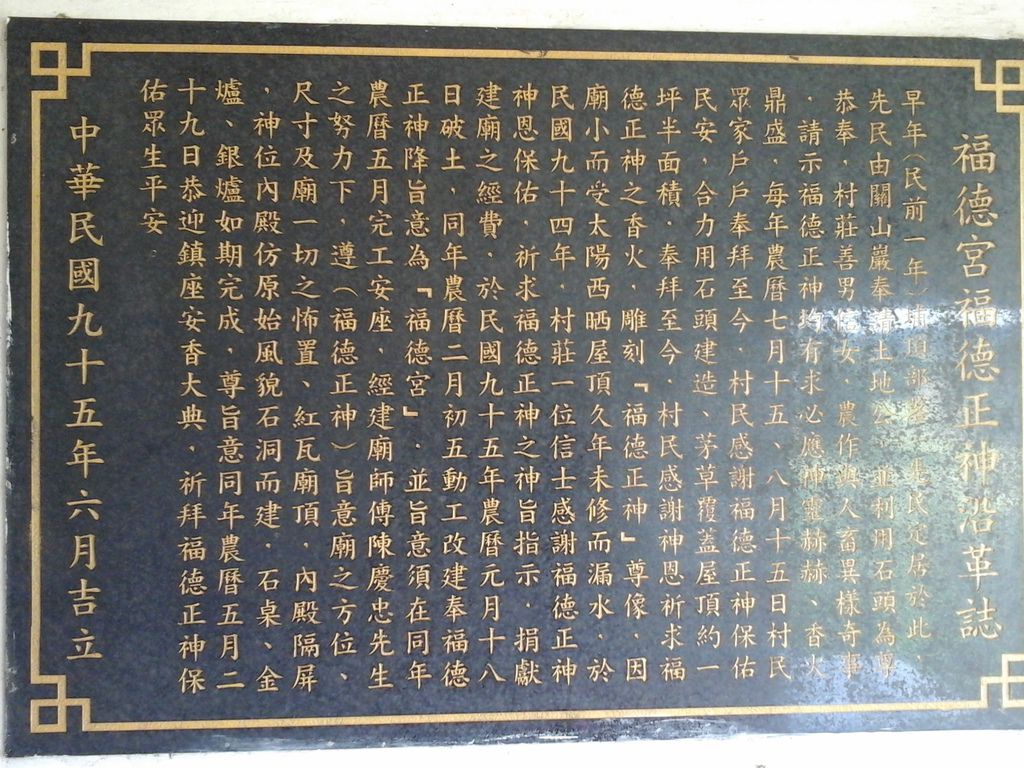 福德宮福德正神沿革誌
早年(民前一年)埔園部落，集民定居於此、
先民由關山巖奉請土地公，並利用石頭為尊
恭奉，村莊善男信女，農作與人畜異樣奇事
，請示福德正神均有求必應神靈赫赫、香火
鼎盛，每年農曆七月十五、八月十五日村民
眾家戶戶奉拜至今，村民感謝福德正神保佑
民安，合力用石頭建造、茅草覆蓋屋頂約一
坪半面積，奉拜至今，村民感謝神恩祈求福
德正神之香火，雕刻『福德正神』尊像，因
廟小而受太陽西晒屋頂久年未修而漏水，於
民國九十四年，村莊一位信士感謝福德正神
神恩保佑，祈求福德正神之神旨指示，捐獻
建廟之經費，於民國九十五年農曆元月十八
日破土，同年農曆二月初五動工改建奉福德
正神降旨意為『福德宮』，並旨意須在同年
農曆五月完工安座，經建廟師傅陳慶忠先生
之努力下，遵（福德正神）旨意廟之方位、
尺寸及廟一切之怖置、紅瓦廟頂，內殿隔屏
，神位內殿仿原始風貌石洞而建，石桌、金
爐、銀爐如期完成，尊旨意同年農曆五月二
十九日恭迎鎮座安香大典，祈拜福德正神保
佑眾生平安。
中華民國九十五年六月吉立